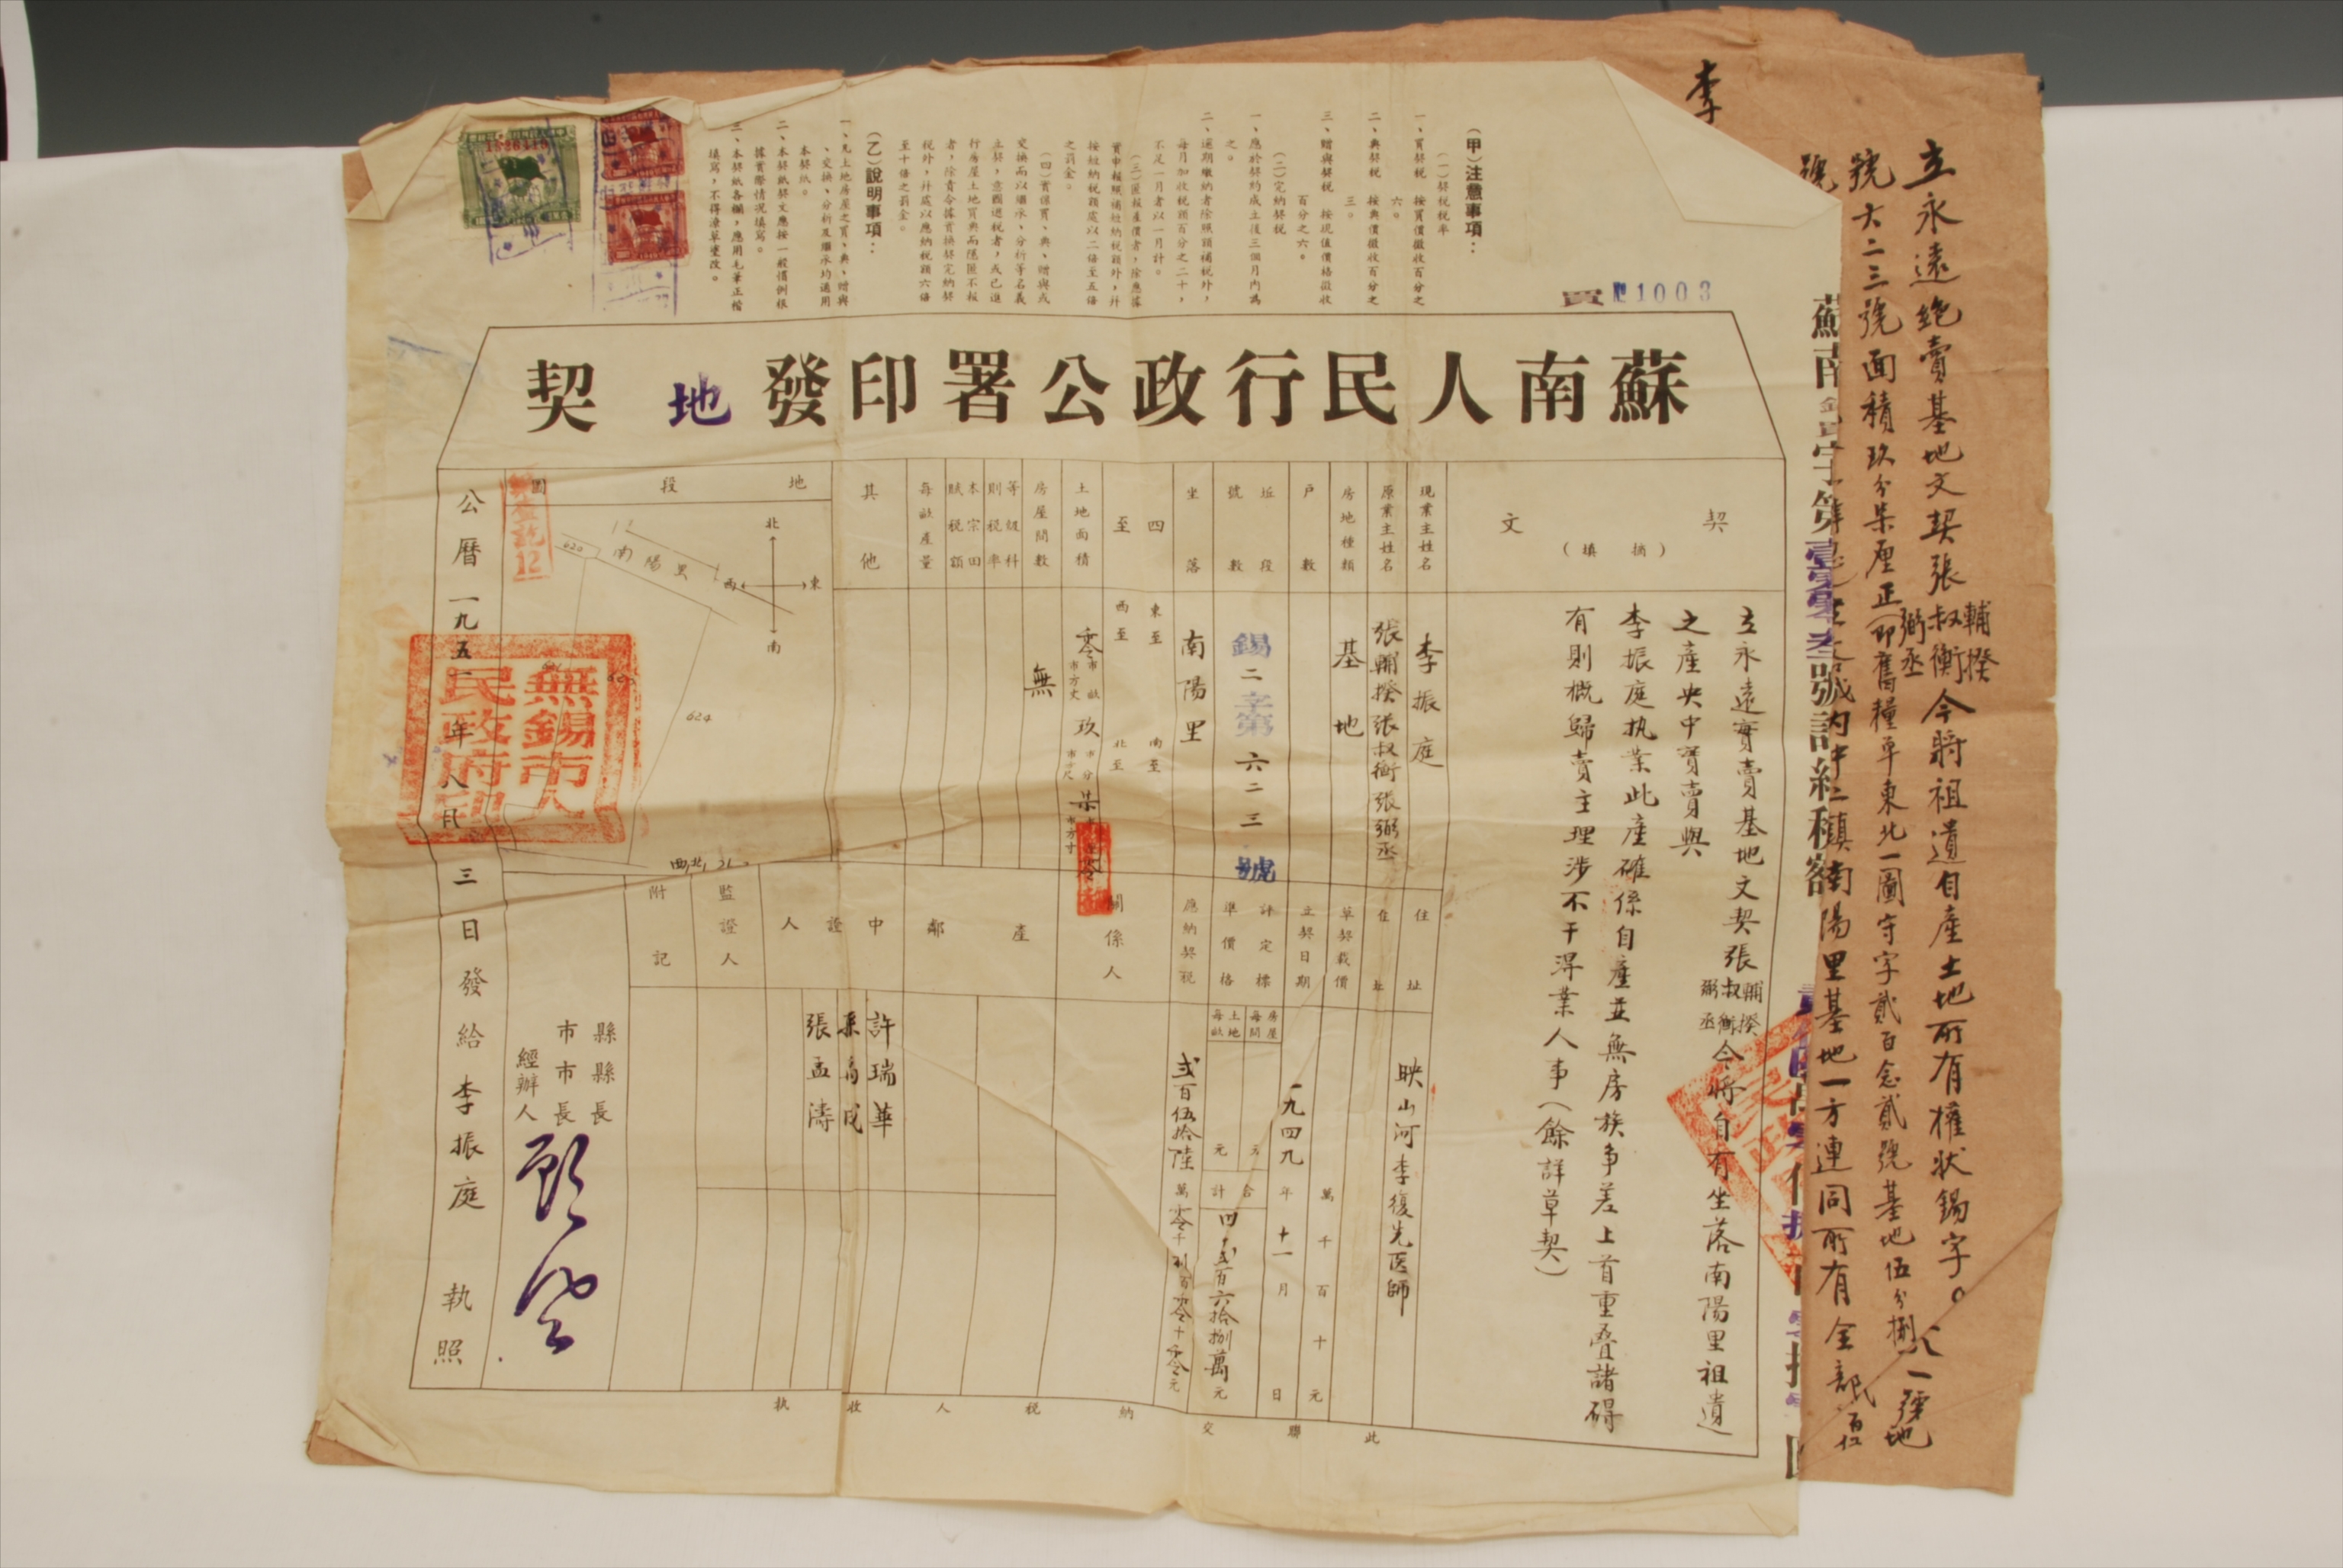 立永遠絶賣基地文契張輔揆叔衡弼丞今將祖遺自產土地所有權狀錫字。
號大二三號面積玖分柒厘正(即舊糧單東北一圖守字貳百念貳號基地伍分捌
一號地
南陽里基地一方連同所有全部
李
蘇南
字第壹零零叁號計紅積額
買
1003
(甲)注意事項：
(一)契稅稅率
一、買契稅 按買價徵收百分之
六。
二、典契稅 按典價徵收百分之
三。
三、贈與契稅 按現值價格徵收
百分之六。
(二)完納契稅
一、應於契約成立後三個月內為
之。
二、逾期繳納者除照額補稅外，
每月加收稅額百分之二十，
不足一月者以一月計。
(三)匿報產價者，除應據
實申報照補短納稅額外，并
按短納稅額處以二倍至五倍
之罰金。
(四)實係買、典、贈與或
交換而以繼承、分析等名義
立契，意圖逃稅者，或已進
行房屋土地買典而隱匿不報
者，除責令據實換契完納契
稅外，并處以應納稅額六倍
至十倍之罰金。
(乙)說明事項：
一、凡土地房屋之買、典、贈與
、交換、分析及繼承均適用
本契紙。
二、本契紙契文應按一般慣例根
據實際情況填寫。
三、本契紙各欄，應用毛筆正楷
填寫，不得潦草塗改。
蘇南人民行政公署印發地契
契文
(摘填)
立永遠賣基地文契張輔揆叔衡弼丞今將自有坐落南陽里祖遺
之產央中賣與
李振庭执業此產確係自產並無房族争差上首重叠諸碍
有則概歸賣主理涉不干得業人事(餘詳草契)
現業主姓名 李振庭 住址 映山河李復先医師
原業主姓名 張輔揆張叔衡張弼丞 住址
房地種類 基地 草契載價 萬千百十元
戶數 立契日期 一九四九年十一月 日
坵段號數 錫二字第六二三號 評定標準價格 房屋每間 元 土地每畝 元 合計 四千弍百六拾捌萬元
坐落 南陽里 應納契稅 弍百伍拾陸萬零千捌百零十零元
四至 東至 南至 西至 北至
土地面積 零市畝玖市分柒
市方丈 市方尺 市方寸
房屋間數 無
等級科則稅率
本宗田賦稅額
每畝產量
其他
關係人
產鄰
中證人 許瑞華
張孟濤
監證人
附記
地段圖
北
東
南
西
南陽里
12
620
624
西北 21
無錫市人民政府印
縣縣長
市市長
經辦人
公曆一九五一年八月三日發給李振庭執照
此聯交納稅人收執
1526416